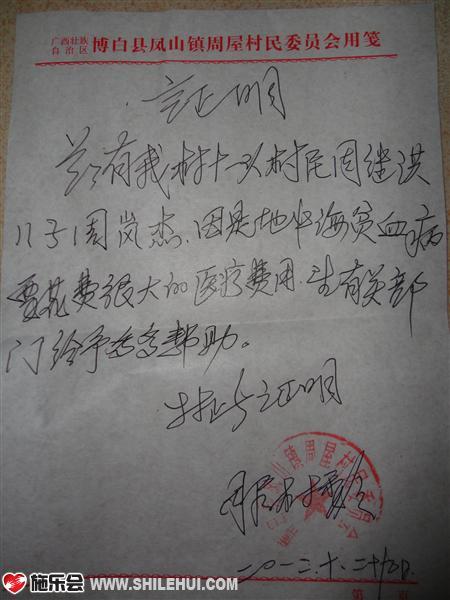 广西壮族
自治区 博白县凤山镇周屋村民委员会用笺
证明
兹有我村十一队村民周继洪
儿子周岚杰.因是地中海贫血病
要花费很大的医疗费用.望有关部
门给予多多帮助。
特此证明
周屋村
二〇一二.十.二十
施乐会 WWW.SHILEHUI.COM
第 页